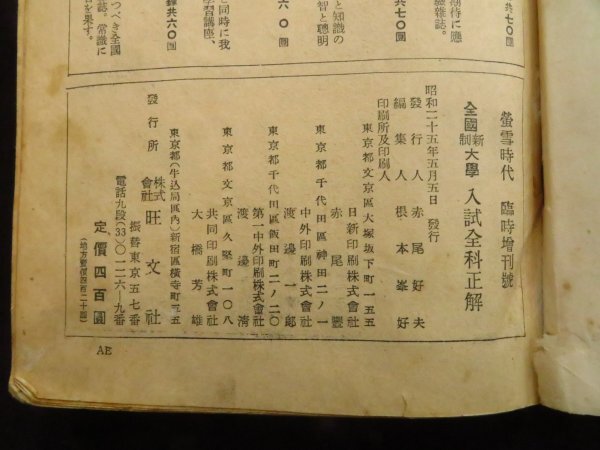 期待に應
雜誌。
共七〇圓
と知識の
智と聰明
六〇圓
と同時に我
學習講座、
雜共六〇圓
つべき全國
誌。常識に
を果す。
螢雪時代 臨時增刊號
全國新制大學 入試全科正解
昭和二十五年五月五日 發行
發行人 赤尾好夫
編集人 根本峯好
印刷所及印刷人
東京都文京區大塚坂下町一五五
日新印刷株式會社
赤尾豐
東京都千代田區神田二ノ一
中外印刷株式會社
渡邊一郎
東京都千代田區飯田町二ノ二〇
第一中外印刷株式會社
渡邊淸
東京都文京區久堅町一〇八
共同印刷株式會社
大橋芳雄
東京都(牛込局區內)新宿區橫寺町五五
發行所 株式會社 旺文社
振替東京五七番
電話九段(33)〇一二六—九番
定價四百圓
(地方賣價四百二十圓)
AE